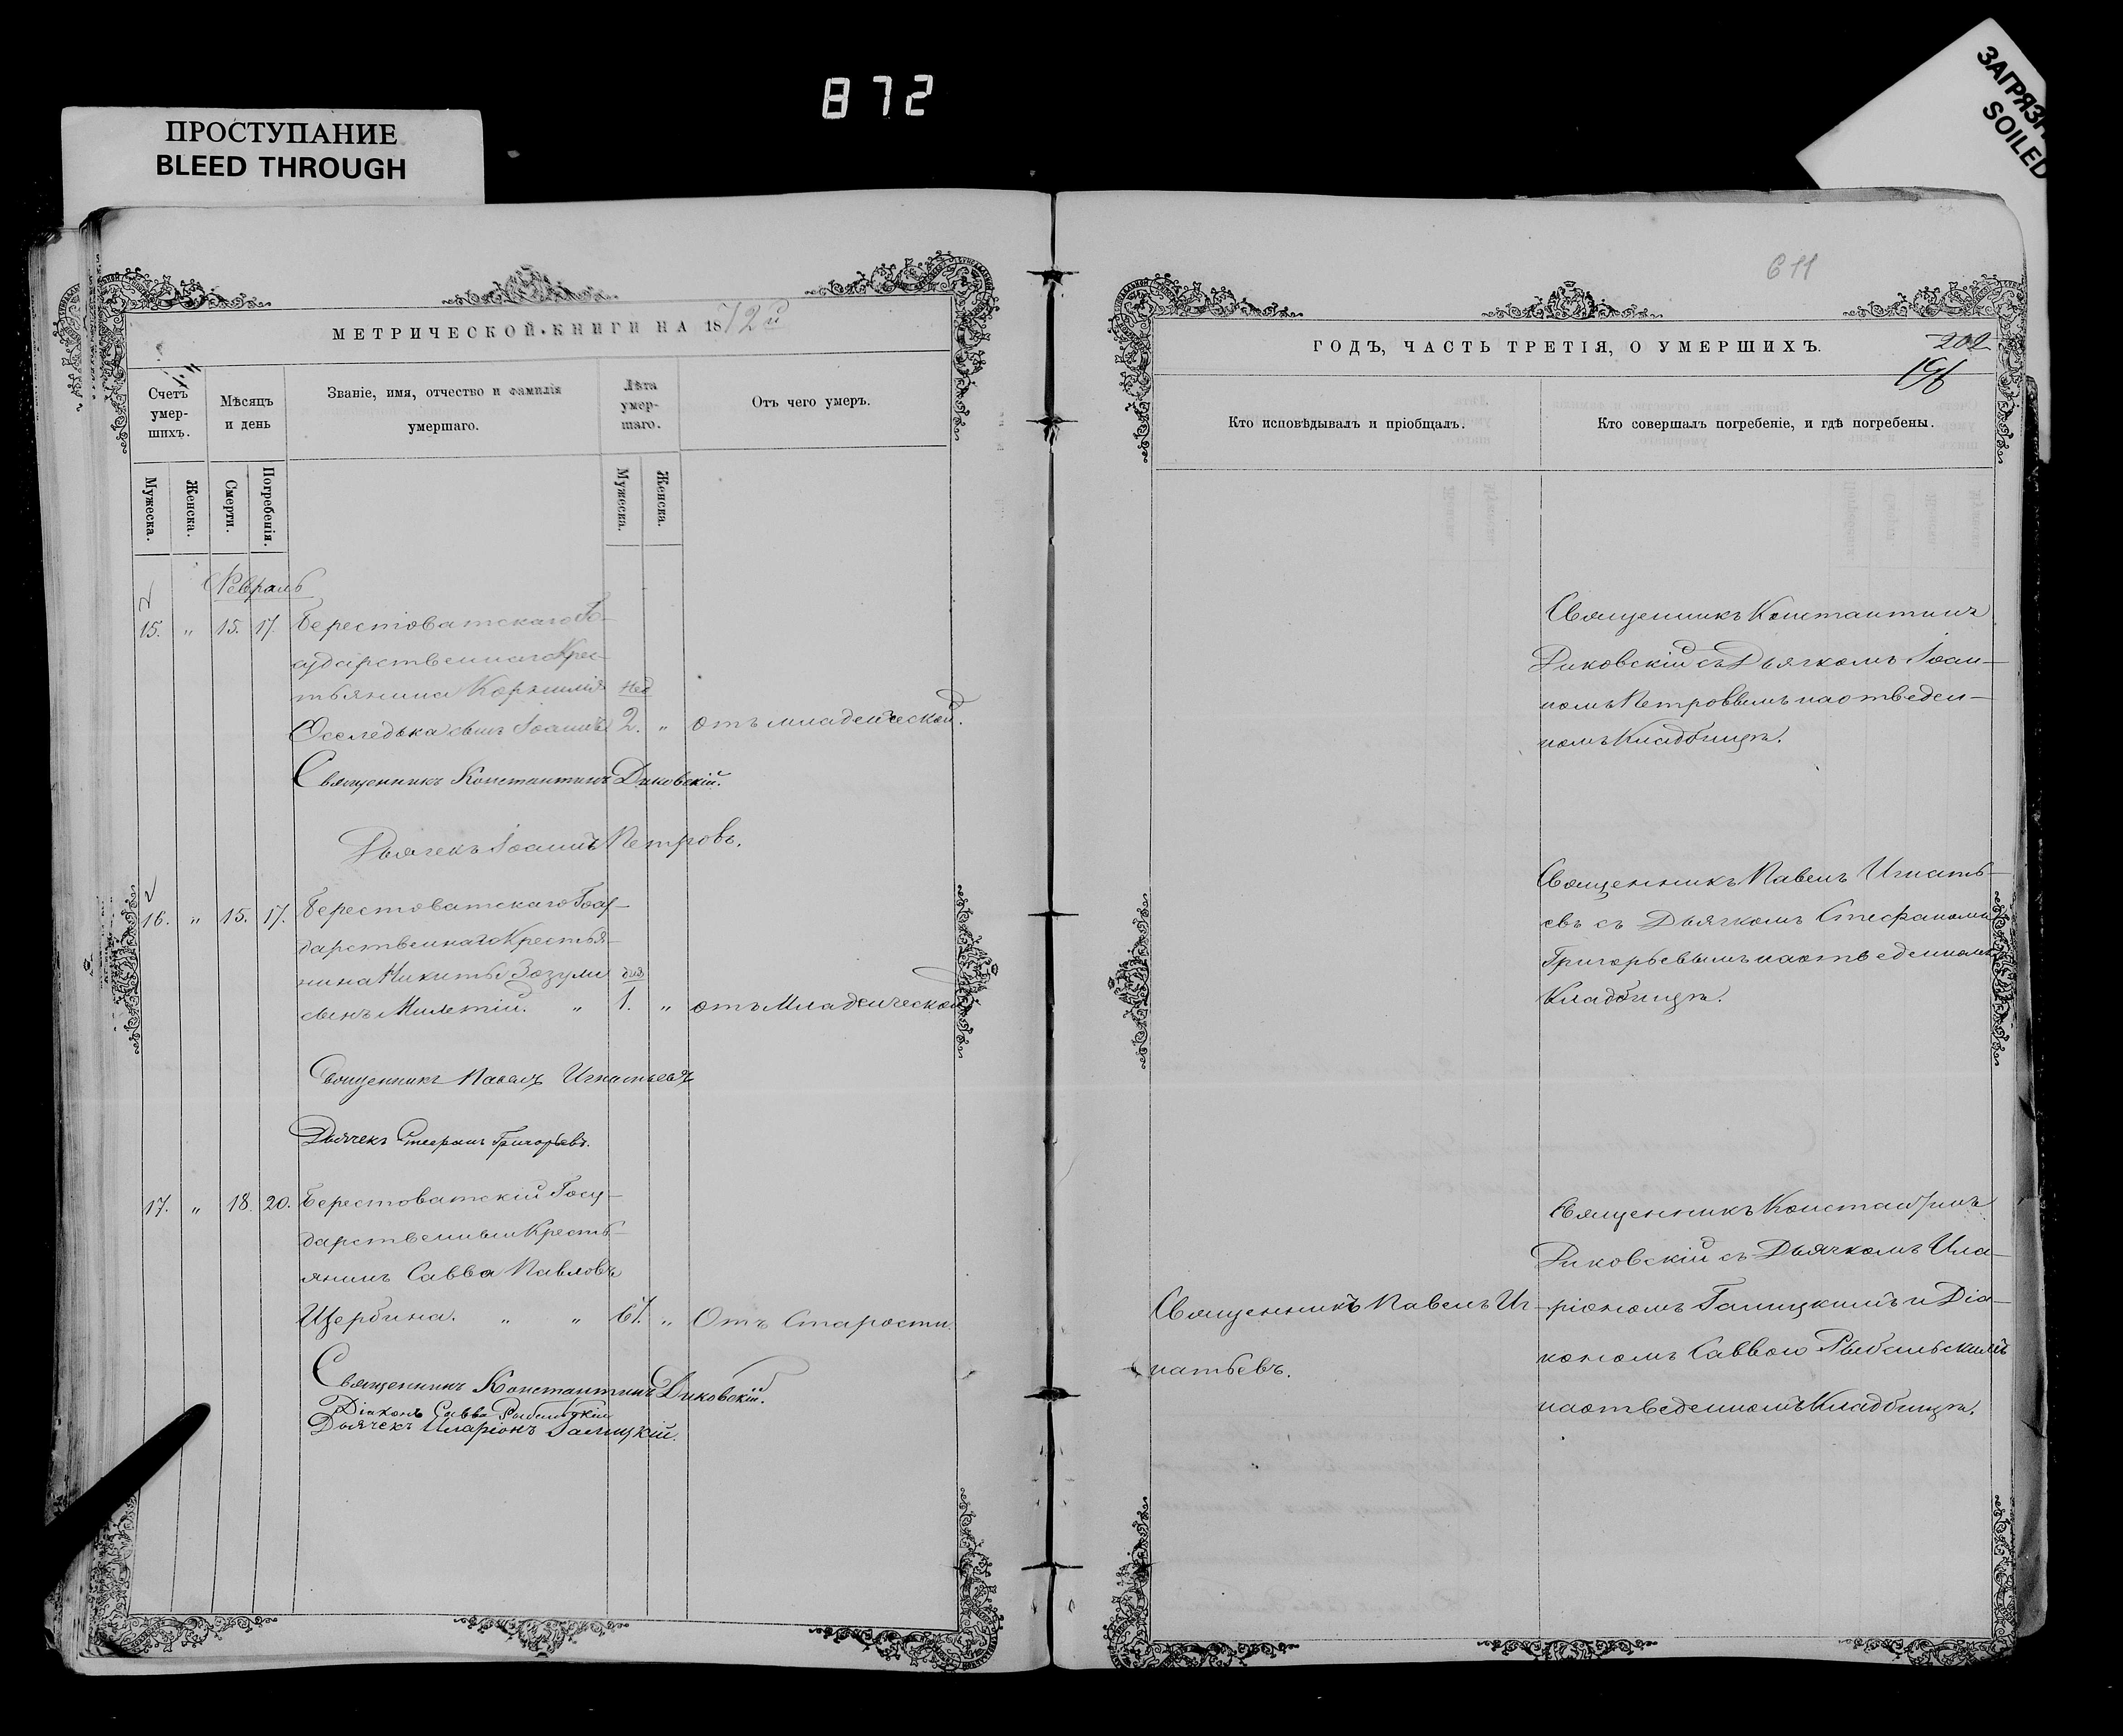 872
ПРОСТУПАНИЕ
BLEED THROUGH
ЗАГРЯЗН
SOILED
МЕТРИЧЕСКОЙ КНИГИ НА 1872й
Счетъ умер-шихъ.
Мѣсяцъ и день
Званіе, имя, отчество и фамилія умершаго.
Лѣта умер-шаго.
Отъ чего умеръ.
Мужеска.
Женска.
Смерти.
Погребенія.
Мужеска.
Женска.
Февраль
15. " 15. 17. Берестоватскаго Го-
сударственнаго Крес-
тьянина Корнилія нед
Оселедька сынъ Іоаннъ 2. " отъ младенческой.
Священникъ Константинъ Диковскій.
Дьячекъ Іоаннъ Петровъ.
16. " 15. 17. Берестоватскаго Госу-
дарственнаго Крестья-
нина Никиты Зозули дня
сынъ Милетій. " 1. " отъ Младенческой
Священникъ Павелъ Игнатьевъ
Дьячекъ Стефанъ Григорьевъ.
17. " 18. 20. Берестоватскій Госу-
дарственный Кресть-
янинъ Савва Павловъ
Щербина. " " 61. " Отъ Старости.
Священникъ Константинъ Диковскій.
Діаконъ Савва Рыбальскій
Дьячекъ Иларіонъ Галицкій.
611
ГОДЪ, ЧАСТЬ ТРЕТІЯ, О УМЕРШИХЪ.
202
196
Кто исповѣдывалъ и пріобщалъ.
Кто совершалъ погребеніе, и гдѣ погребены.
Священникъ Константинъ
Диковскій съ Дьячкомъ Іоан-
номъ Петровымъ на отведен-
номъ Кладбищѣ.
Священникъ Павелъ Игнать-
евъ съ Дьячкомъ Стефаномъ
Григорьевымъ на отведенномъ
Кладбищѣ.
Священникъ Константинъ
Диковскій съ Дьячкомъ Ила-
Священникъ Павелъ Иг- ріономъ Галицкимъ и Діа-
натьевъ. кономъ Саввою Рыбальскимъ
на отведенномъ Кладбищѣ.